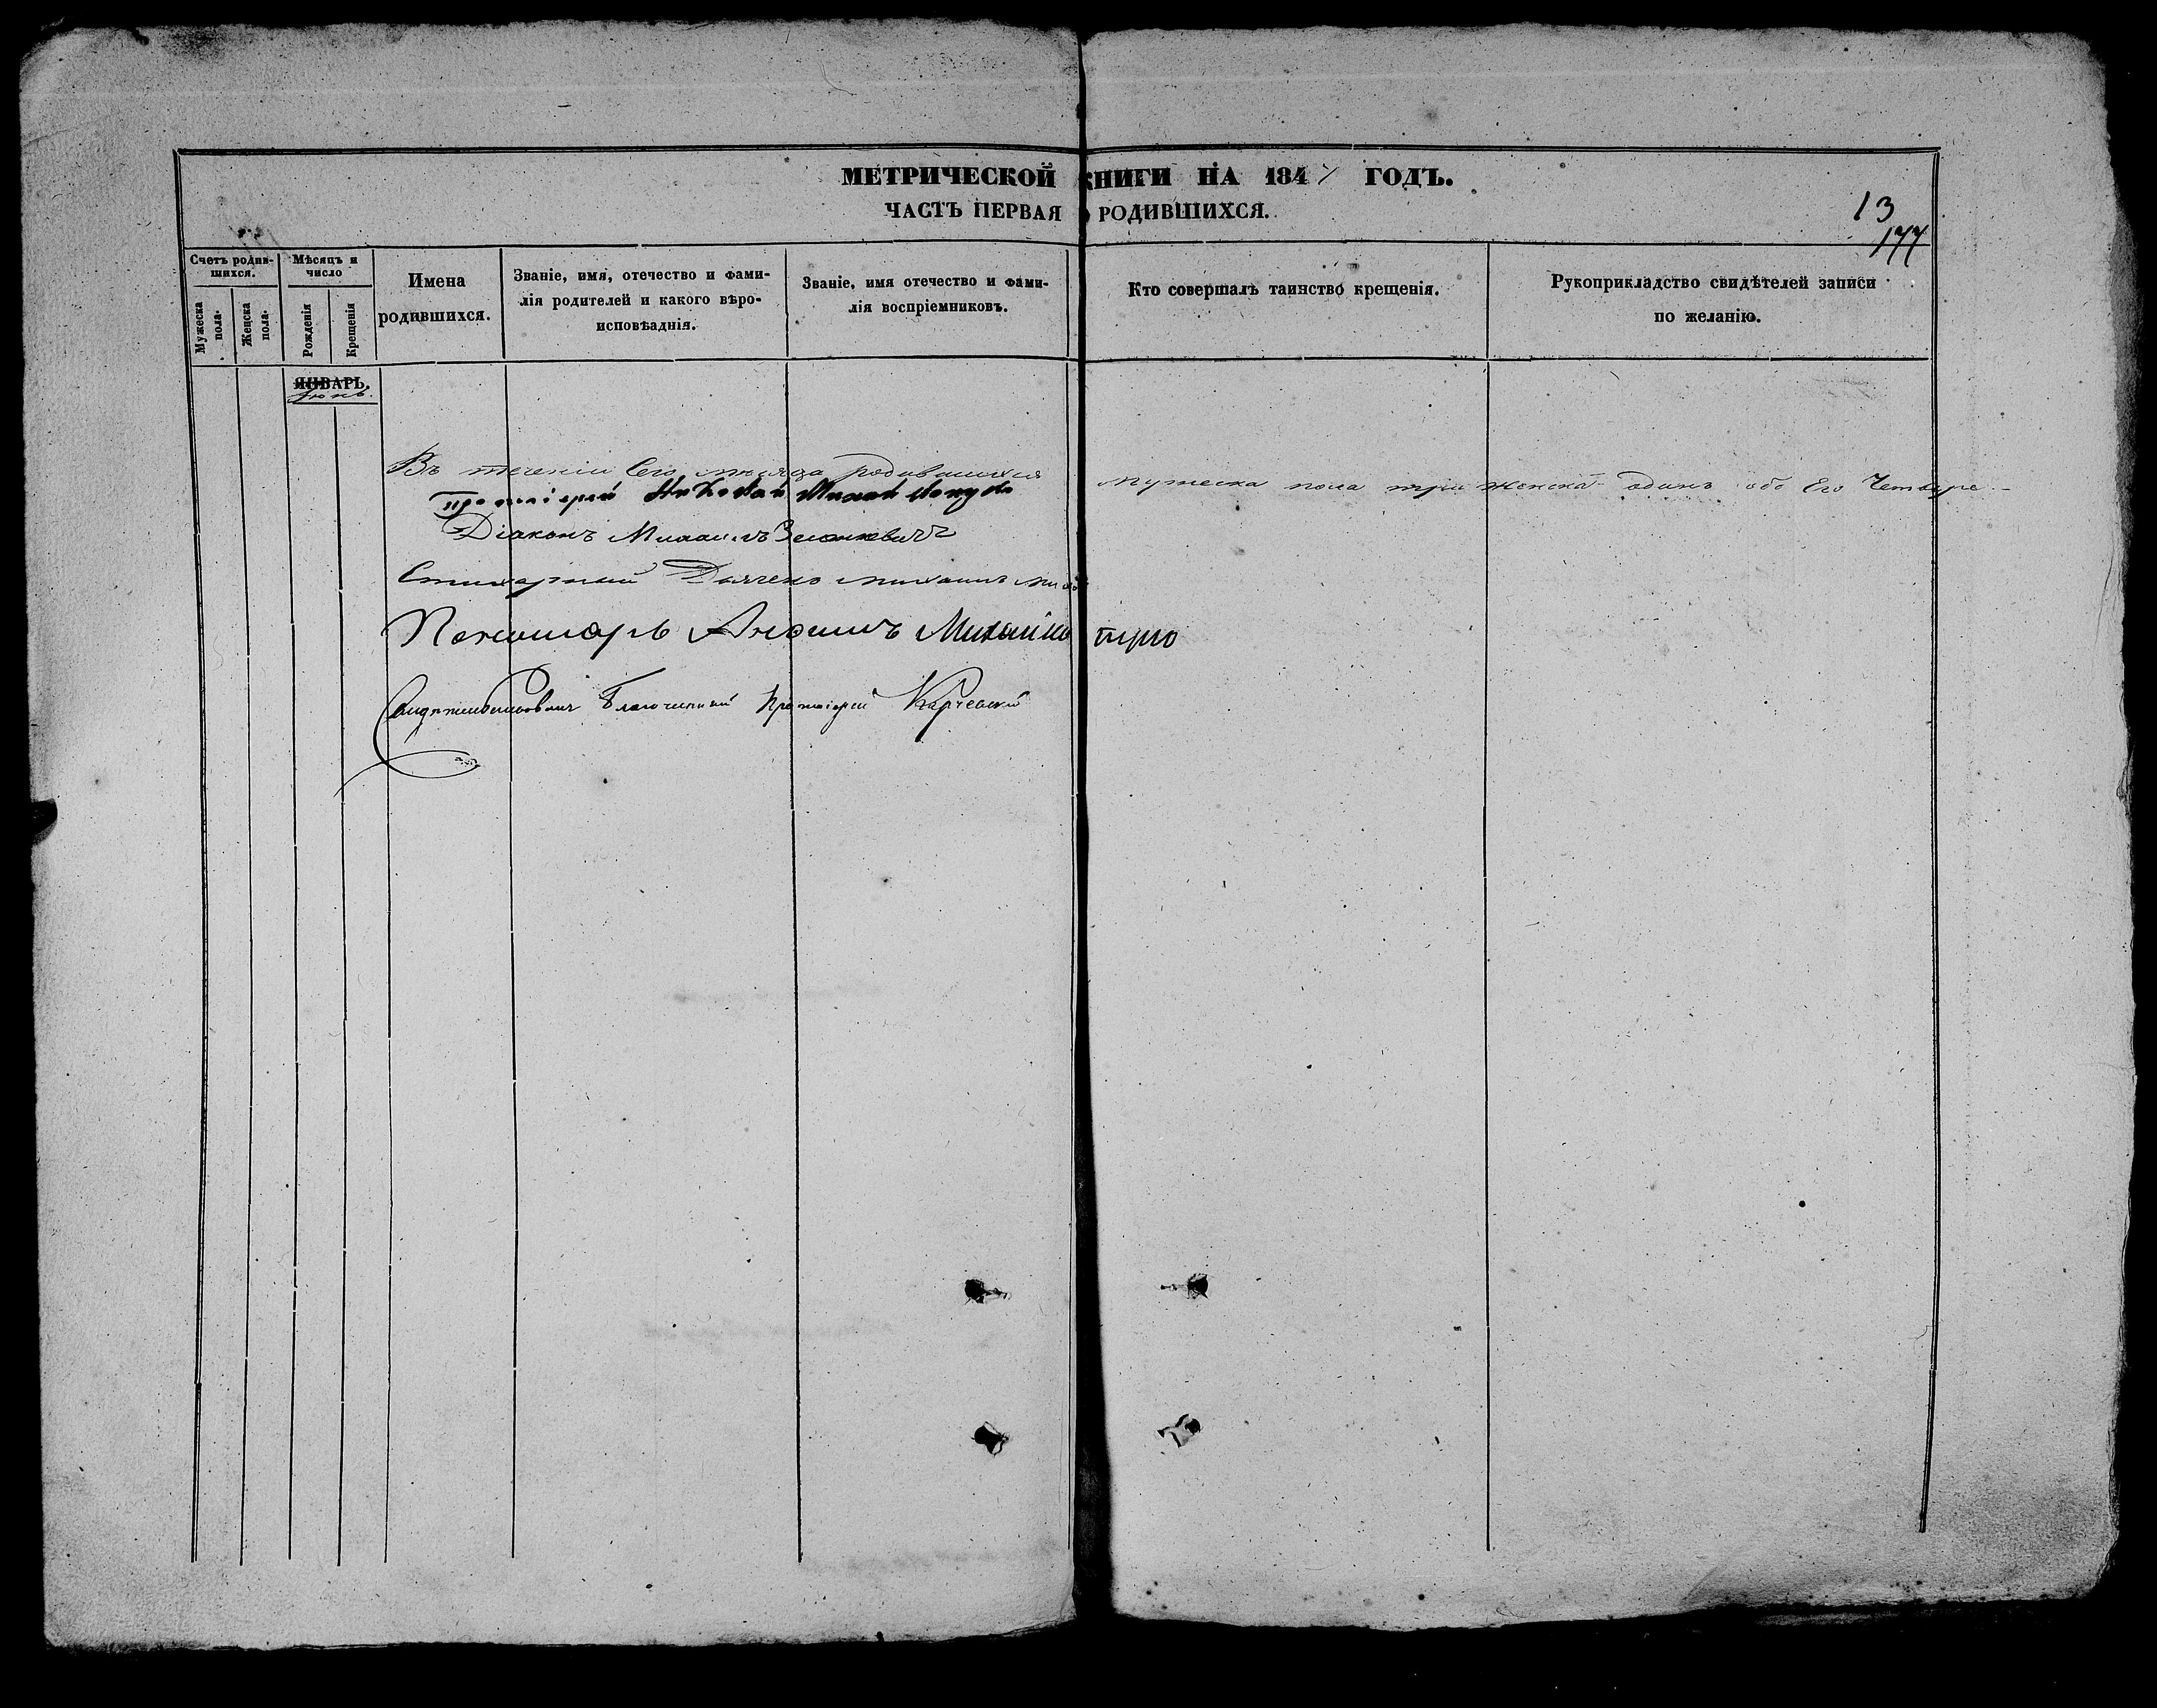 МЕТРИЧЕСКОЙ КНИГИ НА 1847 ГОДЪ.
ЧАСТЬ ПЕРВАЯ О РОДИВШИХСЯ.
13
177
Счетъ родившихся.
Мужеска пола.
Женска пола.
Мѣсяцъ и число
Рожденія
Крещенія
Имена родившихся.
Званіе, имя, отечество и фамилія родителей и какого вѣроисповѣаднія.
Званіе, имя отечество и фамилія воспріемниковъ.
Кто совершалъ таинство крещенія.
Рукоприкладство свидѣтелей записи по желанію.
ЯНВАРЬ.
Іюнь.
Въ теченіи Сего мѣсяца родившихся мужеска пола три женска одинъ обо Его Четыре
Протоіерей Николай
Діаконъ Михаилъ
Стихарный Дьячекъ Михаилъ
Пономарь Михайло
Благочинный Протоіерей